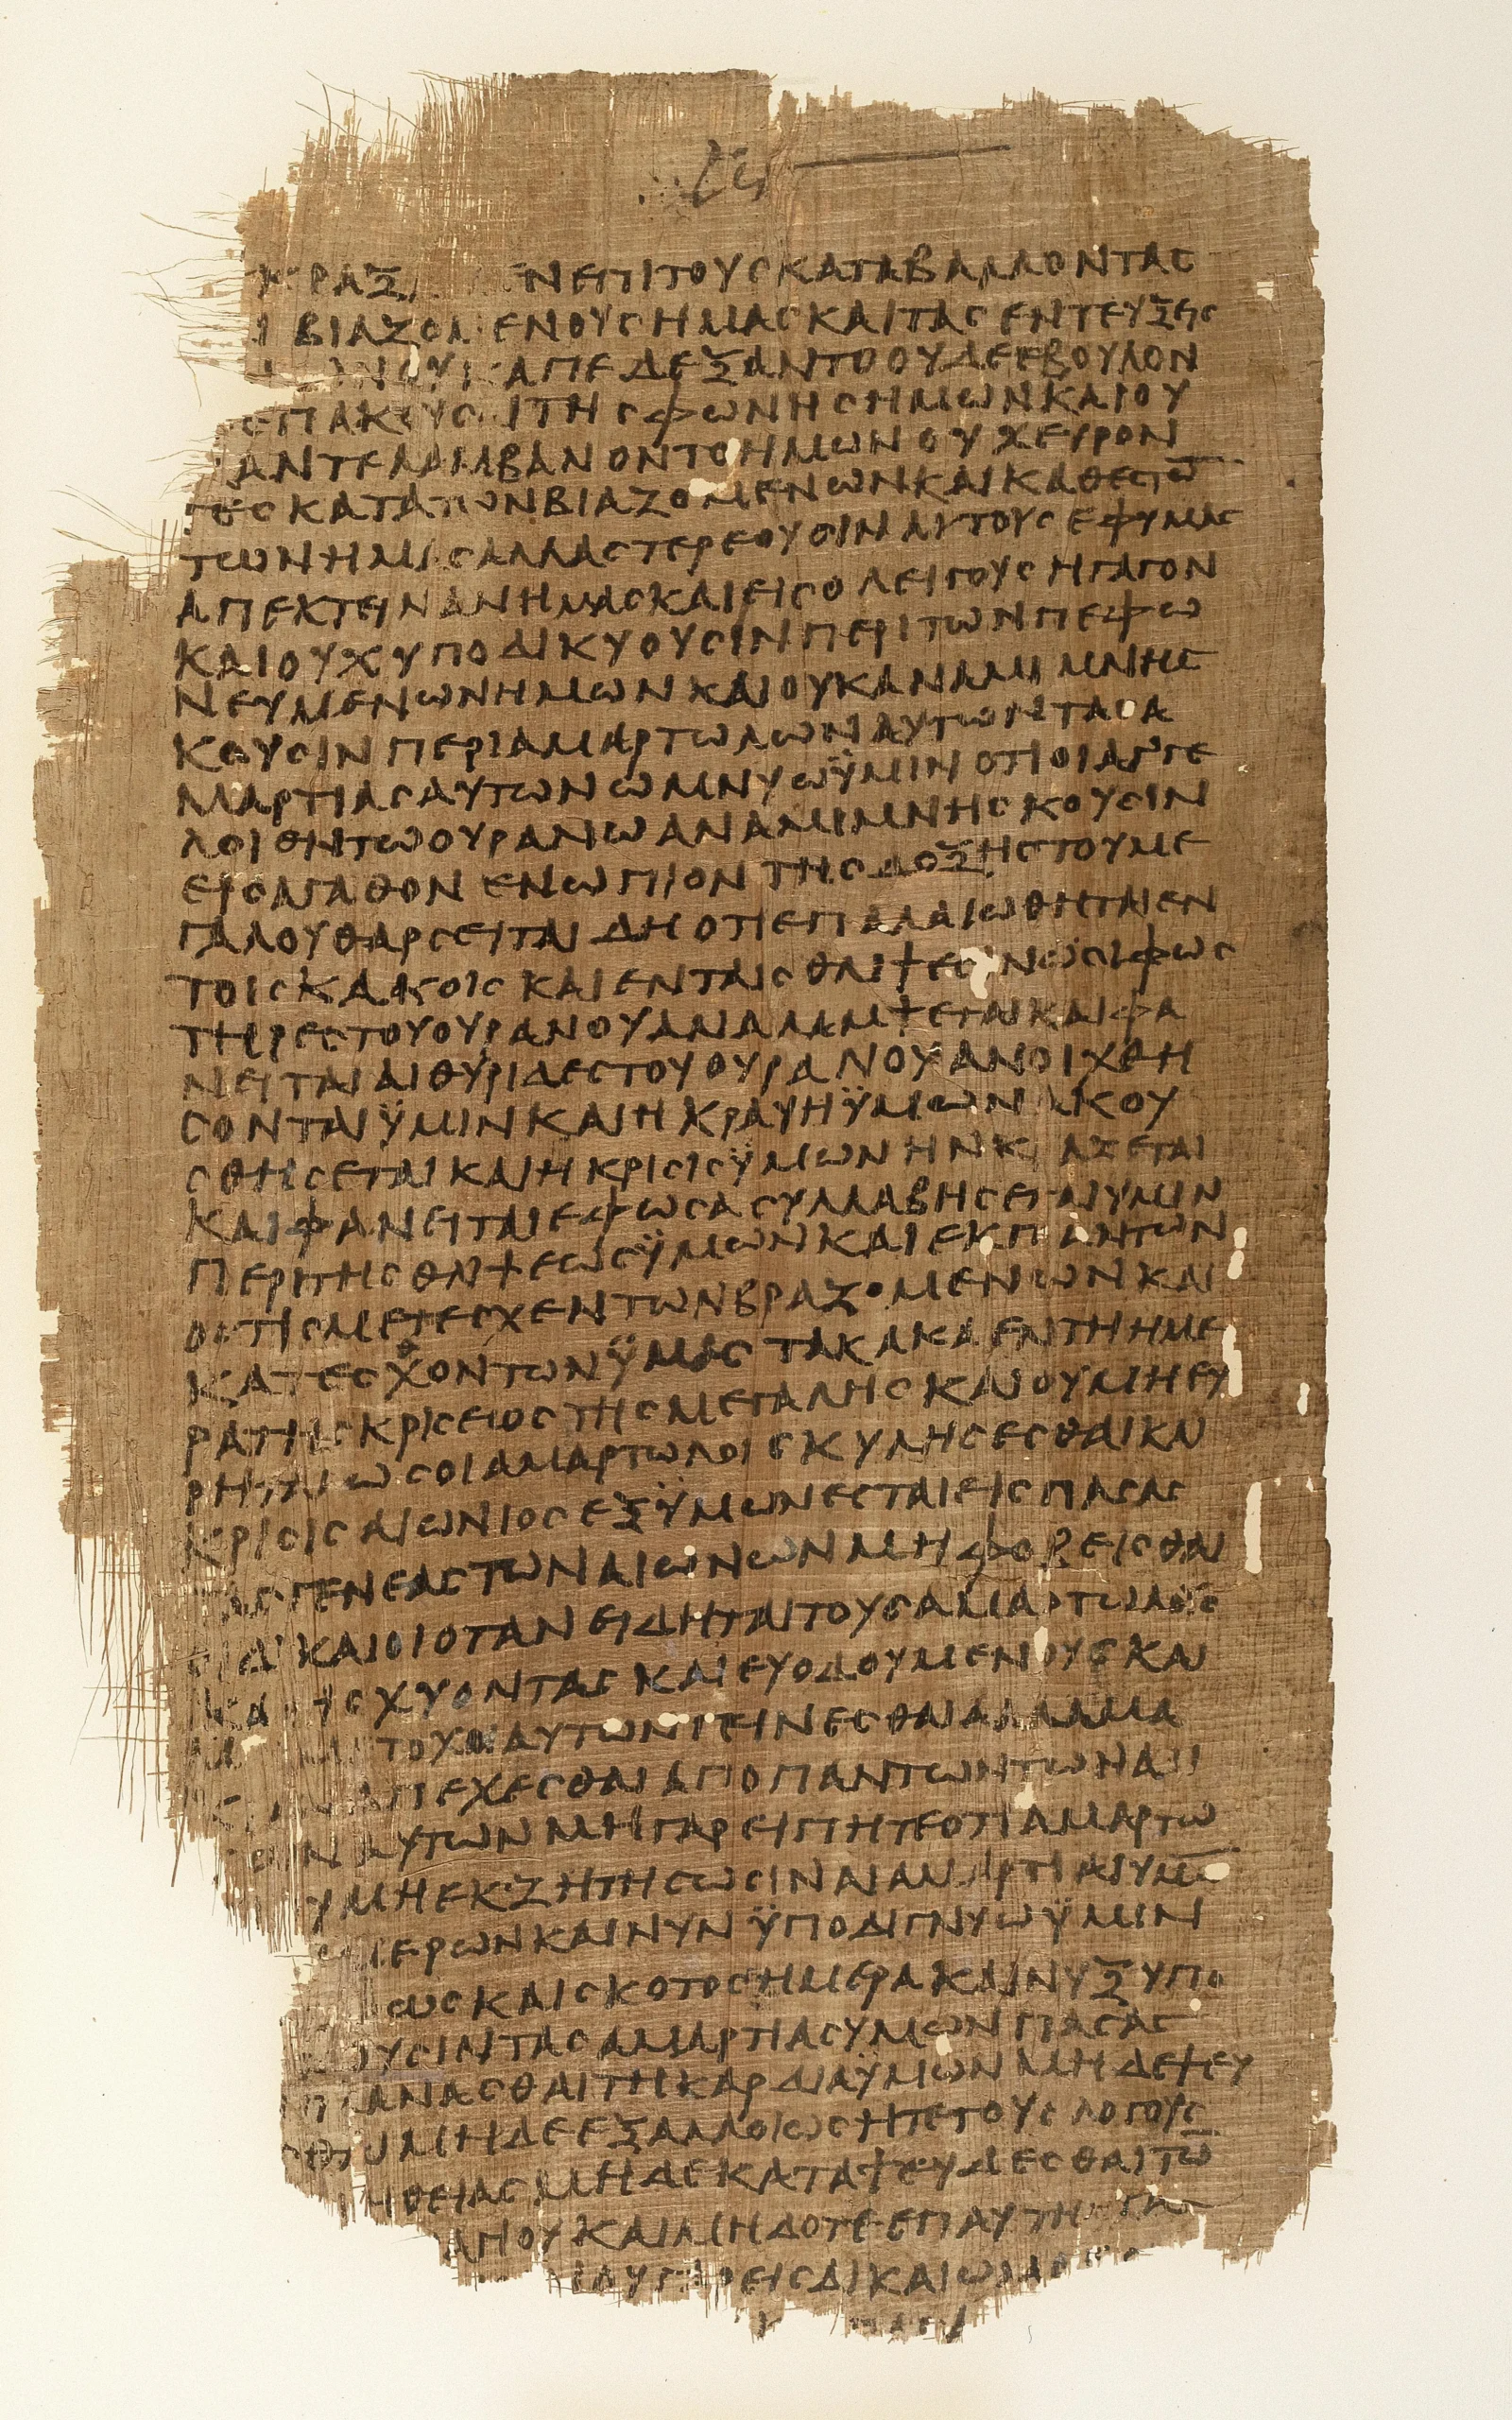 ΕΝΕΠΙΤΟΥΣΚΑΤΑΒΑΛΛΟΝΤΑΣ
ΒΙΑΖΟΜΕΝΟΥΣΗΜΑΣΚΑΙΤΑΣΕΝΤΕΥΞΕΙΣ
ΑΠΕΔΕΞΑΝΤΟΟΥΔΕΕΒΟΥΛΟΝ
ΕΠΑΚΟΥΣΑΙΤΗΣΦΩΝΗΣΗΜΩΝΚΑΙΟΥ
ΑΝΤΕΛΑΜΒΑΝΟΝΤΟΗΜΩΝΟΥΧΕΥΡΟΝ
ΤΕΣΚΑΤΑΤΩΝΒΙΑΖΟΜΕΝΩΝΚΑΙΚΑΘΕΣΤΩ̄
ΤΩΝΗΜΑΣΑΛΛΑΣΤΕΡΕΟΥΣΙΝΑΥΤΟΥΣΕΦΥΜΑΣ
ΑΠΕΚΤΕΙΝΑΝΗΜΑΣΚΑΙΕΙΣΟΛΕΙΓΟΥΣΗΓΑΓΟΝ
ΚΑΙΟΥΧΥΠΟΔΙΚΥΟΥΣΙΝΠΕΡΙΤΩΝΠΕΦΩ
ΝΕΥΜΕΝΩΝΗΜΩΝΚΑΙΟΥΚΑΝΑΜΙΜΝΗΣ
ΚΟΥΣΙΝΠΕΡΙΑΜΑΡΤΩΛΩΝΑΥΤΩΝΤΑΣΑ
ΜΑΡΤΙΑΣΑΥΤΩΝΩΜΝΥΩΫΜΙΝΟΤΙΟΙΑΓΓΕ
ΛΟΙΘΝΤΩΟΥΡΑΝΩΑΝΑΜΙΜΝΗΣΚΟΥΣΙΝ
ΕΙΣΑΓΑΘΟΝΕΝΩΠΙΟΝΤΗΣΔΟΞΗΣΤΟΥΜΕ
ΓΑΛΟΥΘΑΡΣΕΙΤΑΙΔΗΟΤΙΕΠΑΛΑΙΩΘΗΤΑΙΕΝ
ΤΟΙΣΚΑΚΟΙΣΚΑΙΕΝΤΑΙΣΘΛΙΨΕΣΙΝΩΣΙΦΩΣ
ΤΗΡΕΣΤΟΥΟΥΡΑΝΟΥΑΝΑΛΑΜΨΕΤΑΙΚΑΙΦΑ
ΝΕΙΤΑΙΑΙΘΥΡΙΔΕΣΤΟΥΟΥΡΑΝΟΥΑΝΟΙΧΘΗ
ΣΟΝΤΑΙΫΜΙΝΚΑΙΗΚΡΑΥΗΫΜΩΝΑΚΟΥ
ΣΘΗΣΕΤΑΙΚΑΙΗΚΡΙΣΙΣΫΜΩΝΗΝΚΡΑΞΕΤΑΙ
ΚΑΙΦΑΝΕΙΤΑΙΕΦΩΣΑΣΥΛΛΑΒΗΣΕΤΑΙΥΜΙΝ
ΠΕΡΙΤΗΣΘΛΙΨΕΩΣΫΜΩΝΚΑΙΕΚΠΑΝΤΩΝ
ΟΣΤΙΣΜΕΤΕΣΧΕΝΤΩΝΒΡΑΖΟΜΕΝΩΝΚΑΙ
ΚΑΤΕΣΧΟΝΤΩΝΫΜΑΣΤΑΚΑΚΑΕΝΤΗΗΜΕ
ΡΑΤΗΣΚΡΙΣΕΙΟΣΤΗΣΜΕΓΑΛΗΣΚΑΙΟΥΜΗΕΥ
ΡΗΤΑΙΩΣΟΙΑΜΑΡΤΩΛΟΙΣΚΥΛΗΣΕΣΘΑΙΚΑΙ
ΚΡΙΣΙΣΑΙΩΝΙΟΣΕΞΫΜΩΝΕΣΤΑΙΕΙΣΠΑΣΑΣ
ΤΑΣΓΕΝΕΑΣΤΩΝΑΙΩΝΩΝΜΗΦΟΒΕΙΣΘΑΙ
ΟΙΔΙΚΑΙΟΙΟΤΑΝΕΙΔΗΤΑΙΤΟΥΣΑΜΑΡΤΩΛΟΥΣ
ΚΑΤΙΣΧΥΟΝΤΑΣΚΑΙΕΥΟΔΟΥΜΕΝΟΥΣΚΑΙ
ΤΟΧΟΙΑΥΤΩΝΓΕΙΝΕΣΘΑΙΑΛΛΑΜΑ
ΑΠΕΧΕΣΘΑΙΑΠΟΠΑΝΤΩΝΤΩΝΑΔΙ
ΑΥΤΩΝΜΗΓΑΡΕΙΠΗΤΕΟΤΙΑΜΑΡΤΩ
ΜΗΕΚΖΗΤΗΣΩΣΙΝΑΙΑΜΑΡΤΙΑΙΥΜΩ̄
ΜΕΡΩΝΚΑΙΝΥΝΫΠΟΔΙΓΝΥΩΫΜΙΝ
ΩΣΚΑΙΣΚΟΤΟΣΗΜΕΡΑΚΑΙΝΥΞΥΠΟ
ΟΥΣΙΝΤΑΣΑΜΑΡΤΙΑΣΥΜΩΝΠΑΣΑΣ
ΠΛΑΝΑΣΘΑΙΤΗΚΑΡΔΙΑΫΜΩΝΜΗΔΕΨΕΥ
ΜΗΔΕΕΞΑΛΛΟΙΩΣΗΤΕΤΟΥΣΛΟΓΟΥΣ
ΗΘΕΙΑΣΜΗΔΕΚΑΤΑΨΕΥΔΕΣΘΑΙΤΩ̄
ΑΓΙΟΥΚΑΙΜΗΔΟΤΕΕΠΑΥΤΗ
ΟΥΓΑΡΕΙΣΔΙΚΑΙΩΜΑ